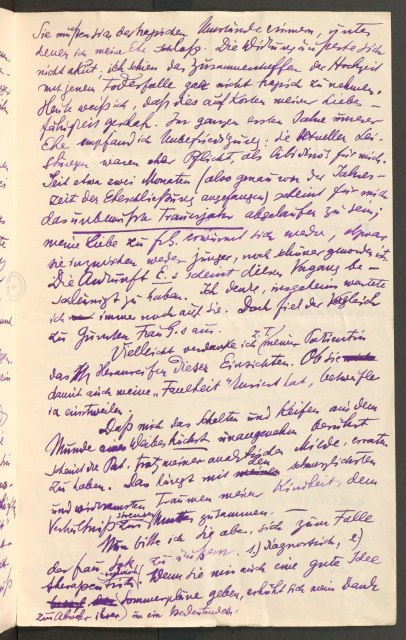 Sie müßen sich der tragischen Umstände erinnern, unter
denen ich meine Ehe schloß. Die Wirkung äußerte sich
nicht akut, ich schien das Zusammentreffen der Hochzeit
mit jenem Todesfalle gar nicht tragisch zu nehmen.
Heute weiß ich, daß dies auf Kosten meiner Liebes-
fähigkeit geschah. Im ganzen ersten Jahre unserer
Ehe empfand ich Unbefriedigung, die sexuellen Lei-
stungen waren eher Pflicht, als Libido für mich.
Seit etwa zwei Monaten (also genau von der Jahres-
zeit der Eheschließung angefangen) scheint für mich
das unbewußte Trauerjahr abgelaufen zu sein;
meine Liebe zu fr. G. erwärmt sich wieder, obzwar
sie inzwischen weder jünger, noch schöner geworden ist.
Die Ankunft E.s scheint diesen Vorgang be-
schleunigt zu haben. Ich denke, insgeheim wartete
ich immer noch auf sie. Doch fiel der Vergleich
zu Gunsten Frau G.s aus.
Vielleicht verdanke ich z. T. meiner Patientin
das Heranreifen dieser Einsichten. Ob sie
damit auch meine „Faulheit" kuriert hat, bezweifle
ich einstweilen.
Daß mich das Schelten und Keifen aus dem
Munde eines Weibes höchst unangenehm berührt
scheint die Pat. trotz meiner analytischen Milde, erraten
zu haben. Das hängt mit den schmerzlichsten
und wirksamsten Traumen meiner Kindheit, dem
Verhältniß zur strengen Mutter zusammen.
Nun bitte ich Sie aber, sich zum Falle
der frau zu äußern. 1.) diagnostisch, 2)
therapeutisch. Wenn Sie mir auch eine gute Idee
Sommerpläne geben, erhöht sich mein Dank
um ein Bedeutendes.